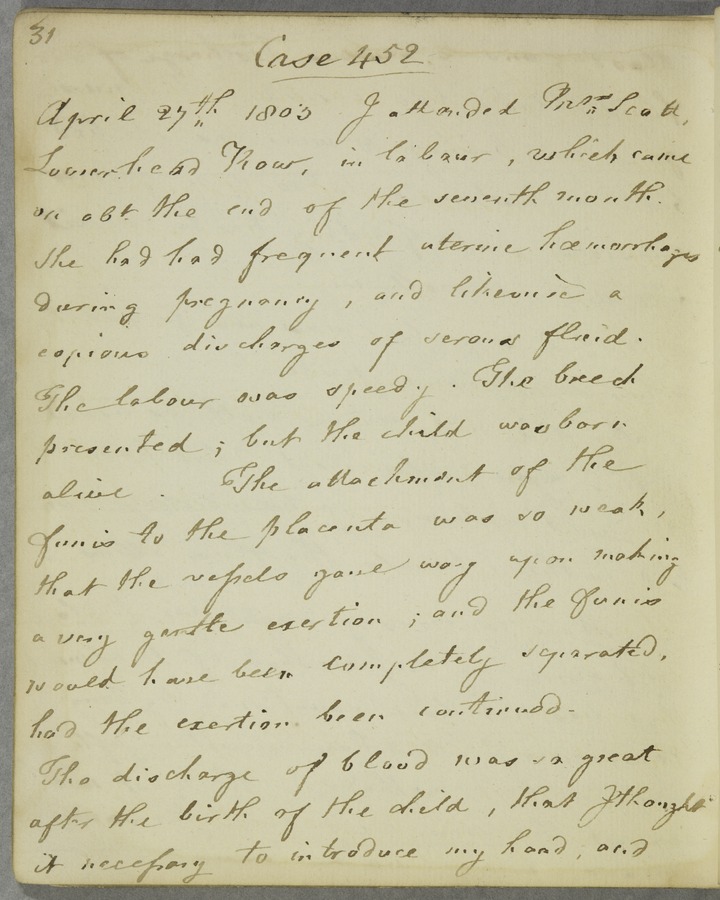 31
Case 452
April 27th 1803 I attended Mrs Scott,
Lowerhead Row, in labour, which came
on abt the end of the seventh month.
She had had frequent uterine hæmorrhages
during pregnancy, and likewise a
copious discharges of serous fluid.
The labour was speedy. The breech
presented; but the child was born
alive. The attachment of the
funis to the placenta was so weak,
that the vessels gave way upon making
a very gentle exertion; and the funis
would have been completely separated,
had the exertion been continued.
The discharge of blood was so great
after the birth of the child, that I thought
it necessary to introduce my hand, and